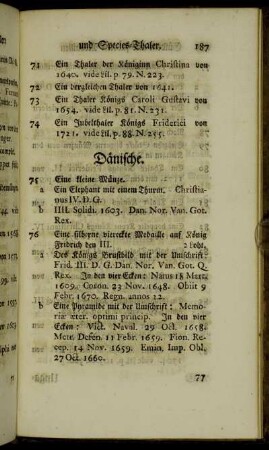 und Species-Thaler. 187
71 Ein Thaler der Königinn Christina von
1640. vide Lil. p 79. N. 223.
72 Ein dergleichen Thaler von 1641.
73 Ein Thaler Königs Caroli Gustavi von
1654. vide Lil. p. 81. N. 231.
74 Ein Jubelthaler Königs Friderici von
1721. vide Lil. p. 88. N. 255.
Dänische.
75 Eine kleine Münze.
a Ein Elephant mit einem Thuren. Christia-
nus IV. D. G.
b IIII. Solidi. 1603. Dan. Nor. Van. Got.
Rex.
76 Eine silberne viereckte Medaille auf König
Fridrich den III. 2 loht.
a Des Königs Brustbild mit der Umschrift:
Frid. III. D. G. Dan. Nor. Van. Got. Q.
Rex. In den vier Ecken: Natus 18 Mart
1609. Coron. 23 Nov. 1648. Obiit 9
Febr. 1670. Regn. annos 12.
b Eine Pyramide mit der Umschrift: Memo-
riæ æter. optimi princip. In den vier
Ecken: Vict. Naval. 29 Oct. 1658.
Metr. Defen. 11 Febr. 1659. Fion. Re-
cep. 14 Nov. 1659. Emin. Imp. Obl.
27 Oct. 1660.
77